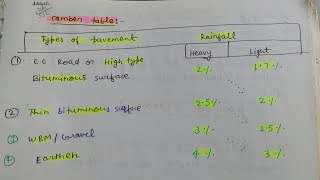 Camber table:-
Types of pavement Rainfall
Heavy Light
① C.C Road or High type 2% 1.7%
Bituminous surface
② Thin bituminous surface 2.5% 2%
③ WBM/Gravel 3% 2.5%
④ Earthen 4% 3%